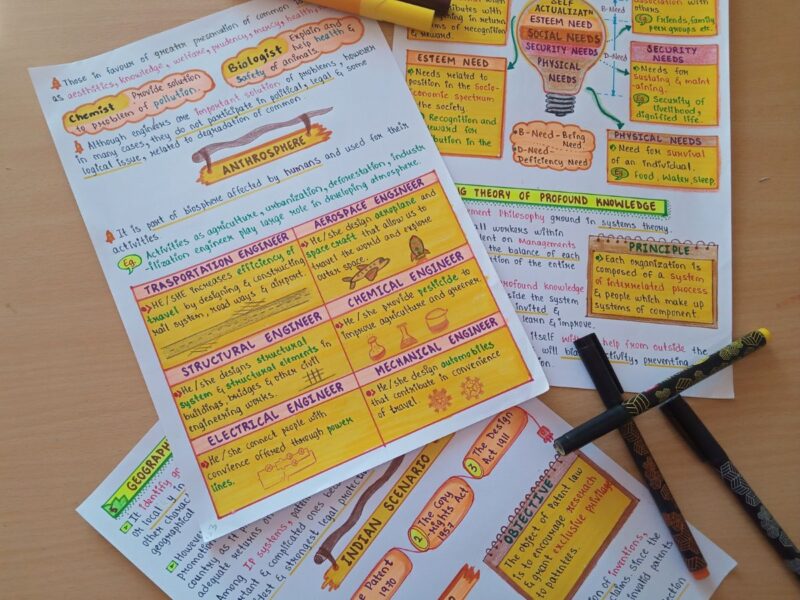 Those in favour of greater preservation of common
as aesthetics, knowledge, welfare, prudency, mercy, health,
Chemist Provide solution
to problem of pollution
Biologist Explain and
help health &
Safety of animals.
Although engineers are important solution of problems, however
in many cases, they do not participate in political, legal & some
logical issue, related to degradation of common.
ANTHROSPHERE
It is part of biosphere affected by humans and used for their
activities.
Eg. Activities as agriculture, urbanization, deforestation, industr
-ilization engineer play large role in developing atmosphere.
TRASPORTATION ENGINEER
He/SHE increases efficiency of
travel by designing & constructing
rail system, road ways & airport.
AEROSPACE ENGINEER
He/she design aeroplane and
space craft that allow us to
travel the world and explore
outer space.
STRUCTURAL ENGINEER
He/she designs structural
system & structural elements in
buildings, bridges & other civil
engineering works.
CHEMICAL ENGINEER
He/she provide pesticide to
improve agriculture and greener
ELECTRICAL ENGINEER
He/she connect people with
convience offered through power
lines.
MECHANICAL ENGINEER
He/she design automobiles
that contribute in convenience
of travel.
with
in return
of recognition
& reward.
ESTEEM NEED
Needs related to
position in the Socio-
economic spectrum
the society.
Recognition and
reward for
in the
SELF
ACTUALIZATN
ESTEEM NEED
SOCIAL NEEDS
SECURITY NEEDS
PHYSICAL
NEEDS
B-Need
D-Need
B-Need-Being
Need
D-Need-
Deficiency Need
association with
others.
Eg Friends, family,
peer groups etc.
SECURITY
NEEDS
Needs for
sustaing & maint
-aining.
Eg Security of
livelihood,
dignified life.
PHYSICAL NEEDS
Need for survival
of an individual.
Eg Food, Water, Sleep.
THEORY OF PROFOUND KNOWLEDGE
Philosophy ground in systems theory.
all workers within
on Managements
the balance of each
of the entire
PRINCIPLE
Each organization is
composed of a system
of interrelated process
& people which make up
systems of component
profound knowledge
the system
invited &
learn & improve.
itself with help from outside the
will preventing
identify
or local
other
geographical
However
promotion
country as it
adequate returns on
Among IP systems,
& complicated ones
& strongest legal
INDIAN SCENARIO
Patent
1970
2 The Copy
-rights Act
1957
3 The Design
Act 1911
OBJECTIVE
The object of Patent law
is to encourage research
& grant exclusive privilages
to patentees.
of inventions,
since the
invalid patents